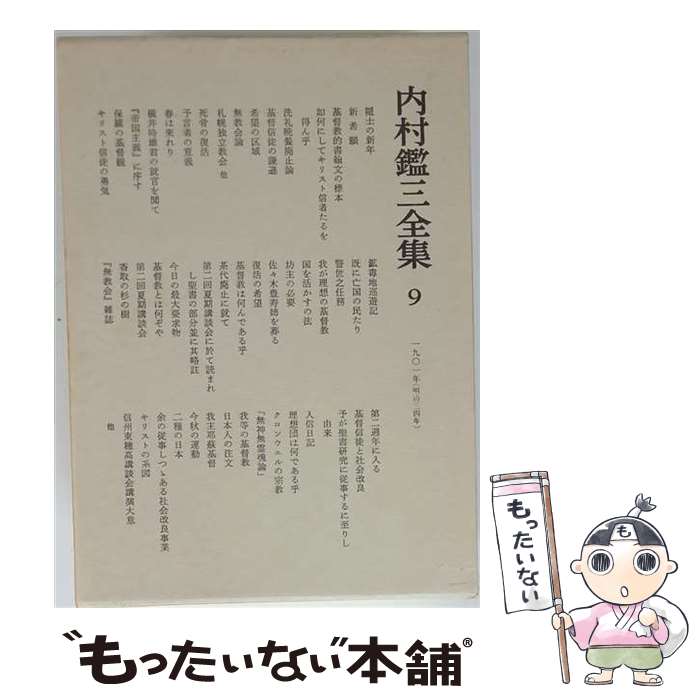 内村鑑三全集 9
一九〇一年(明治三四年)
随士の新年
新希願
基督教的書翰文の標本
如何にしてキリスト信者たるを
得ん乎
洗礼晩餐廃止論
基督信徒の謙遜
希望の区域
無教会論
札幌独立教会 他
死骨の復活
予言者の意義
春は来れり
横井時雄君の就官を聞て
『帝国主義』に序す
保羅の基督観
キリスト信徒の勇気
鉱毒地巡遊記
既に亡国の民たり
警世之任務
我が理想の基督教
国を活かすの法
坊主の必要
佐々木豊寿姉を葬る
復活の希望
基督教は何んである乎
茶代廃止に就て
第二回夏期講談会に於て読まれ
し聖書の部分並に其略註
今日の最大要求物
基督教とは何ぞや
第二回夏期講談会
香取の杉の樹
『無教会』雑誌
第二週年に入る
基督信徒と社会改良
予が聖書研究に従事するに至りし
由来
入信日記
理想団は何である乎
クロンウエルの宗教
『無神無霊魂論』
我等の基督教
日本人の注文
我主耶蘇基督
今秋の運動
二種の日本
余の従事しつゝある社会改良事業
キリストの系図
信州東穂高講談会講演大意
他
もったいない
も
"もったいない本舗"